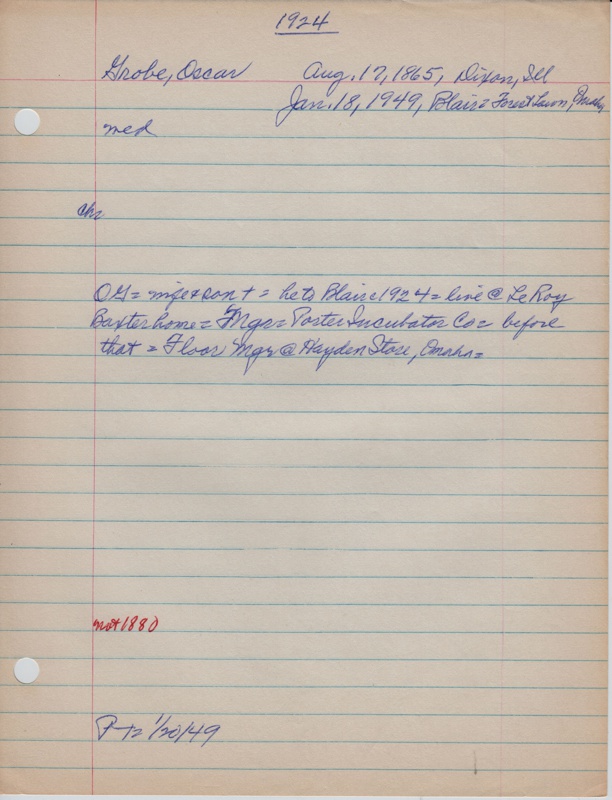 1924
Grobe, Oscar Aug. 17, 1865, Dixon, Ill
Jan. 18, 1949, Blair = Forest Lawn, Omaha
med
chr
OG = wife & son + = he to Blair 1924 = live @ LeRoy
Baxter home = Mgr = Porter Incubator Co = before
that = Floor Mgr @ Hayden Store, Omaha =
not 1880
P-T 1/20/49